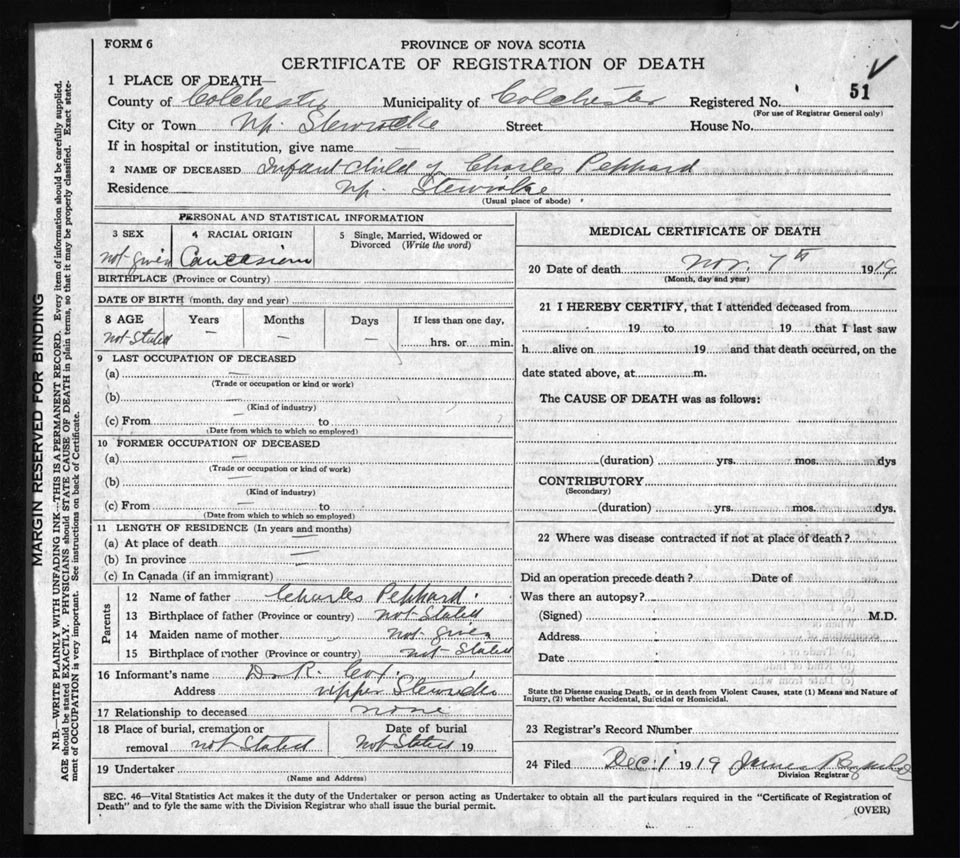 FORM 6
PROVINCE OF NOVA SCOTIA
CERTIFICATE OF REGISTRATION OF DEATH
1 PLACE OF DEATH—
County of Colchester Municipality of Colchester Registered No. 51
(For use of Registrar General only)
City or Town Up. Stewiacke Street House No.
If in hospital or institution, give name —
2 NAME OF DECEASED Infant child of Charles Peppard
Residence Up. Stewiacke
(Usual place of abode)
PERSONAL AND STATISTICAL INFORMATION
3 SEX 4 RACIAL ORIGIN 5 Single, Married, Widowed or Divorced (Write the word)
not given Caucasion
BIRTHPLACE (Province or Country)
DATE OF BIRTH (month, day and year)
8 AGE Years Months Days If less than one day,
not Stated — — — hrs. or min.
9 LAST OCCUPATION OF DECEASED
(a) —
(Trade or occupation or kind or work)
(b) —
(Kind of industry)
(c) From — to
(Date from which to which so employed)
10 FORMER OCCUPATION OF DECEASED
(a) —
(Trade or occupation or kind of work)
(b) —
(Kind of industry)
(c) From — to
(Date from which to which so employed)
11 LENGTH OF RESIDENCE (In years and months)
(a) At place of death —
(b) In province —
(c) In Canada (if an immigrant) —
Parents
12 Name of father Charles Peppard
13 Birthplace of father (Province or country) not Stated
14 Maiden name of mother not given
15 Birthplace of mother (Province or country) not Stated
16 Informant's name D. R. Cox
Address Upper Stewiacke
17 Relationship to deceased none
18 Place of burial, cremation or removal not Stated
Date of burial not Stated 19
19 Undertaker
(Name and Address)
MEDICAL CERTIFICATE OF DEATH
20 Date of death Nov. 7th 1919
(Month, day and year)
21 I HEREBY CERTIFY, that I attended deceased from
19 to 19 that I last saw
h alive on 19 and that death occurred, on the
date stated above, at m.
The CAUSE OF DEATH was as follows:
(duration) yrs. mos. dys
CONTRIBUTORY
(Secondary)
(duration) yrs. mos. dys.
22 Where was disease contracted if not at place of death?
Did an operation precede death? Date of
Was there an autopsy?
(Signed) M.D.
Address
Date
State the Disease causing Death, or in death from Violent Causes, state (1) Means and Nature of
Injury, (2) whether Accidental, Suicidal or Homicidal.
23 Registrar's Record Number
24 Filed Dec. 1 1919 James
Division Registrar
SEC. 46—Vital Statistics Act makes it the duty of the Undertaker or person acting as Undertaker to obtain all the particulars required in the "Certificate of Registration of
Death" and to fyle the same with the Division Registrar who shall issue the burial permit.
(OVER)
MARGIN RESERVED FOR BINDING
N.B.—WRITE PLAINLY WITH UNFADING INK—THIS IS A PERMANENT RECORD. Every item of information should be carefully supplied.
AGE should be stated EXACTLY. PHYSICIANS should STATE CAUSE OF DEATH in plain terms, so that it may be properly classified. Exact state-
ment of OCCUPATION is very important. See instructions on back of Certificate.